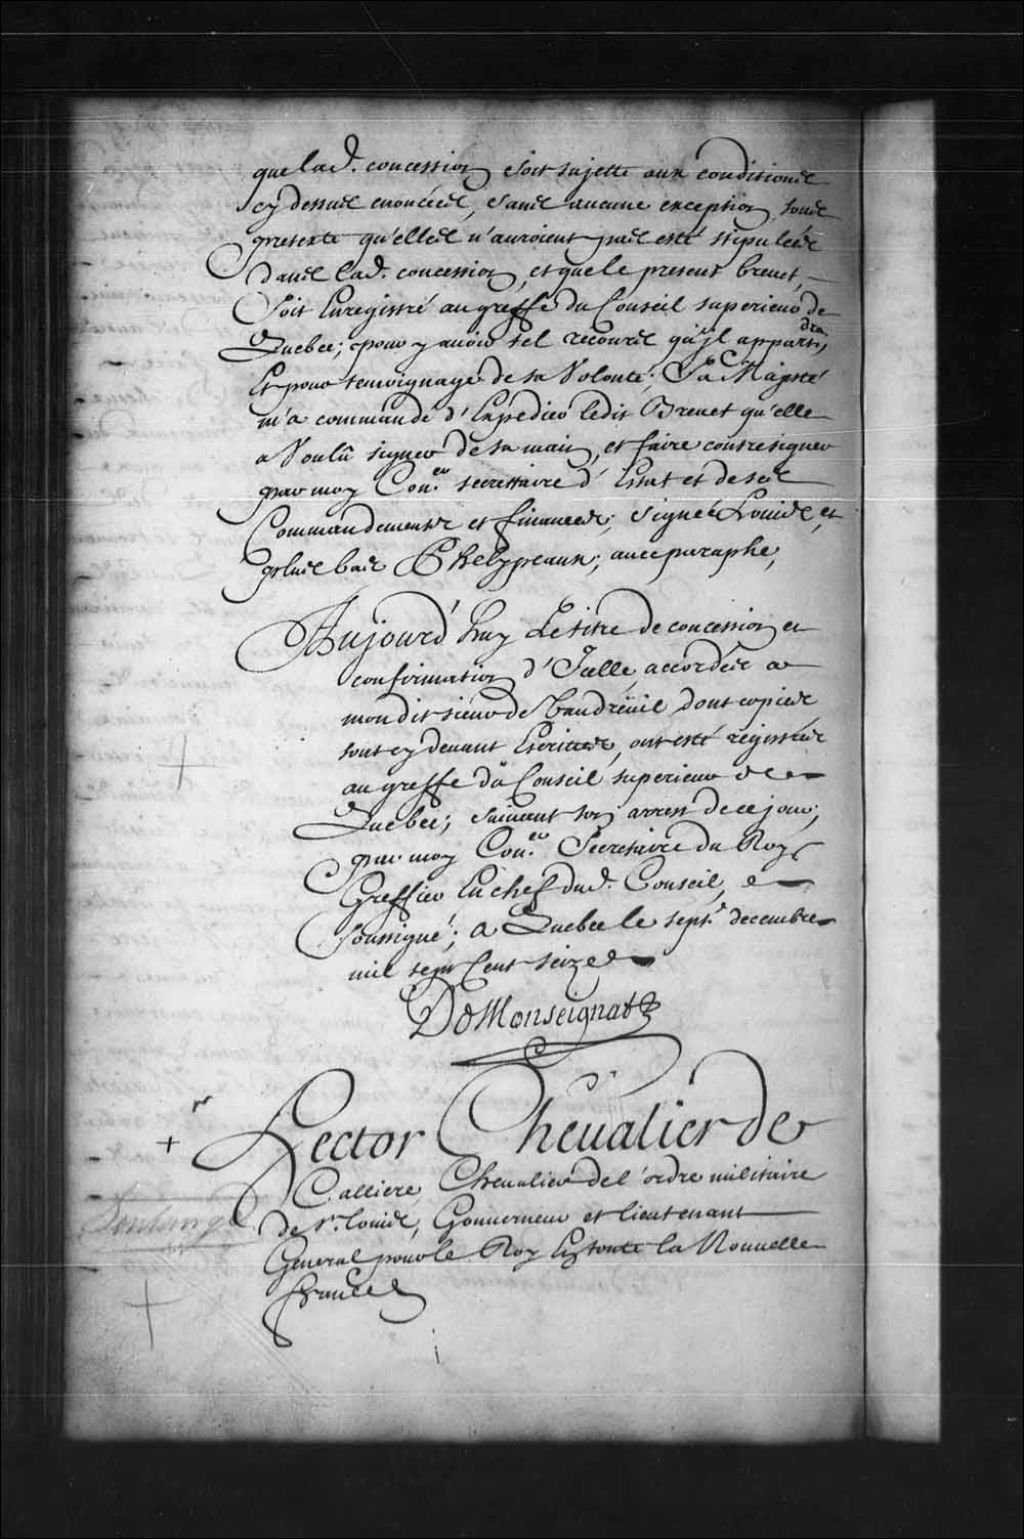 que lad. concession soit sujette aux conditions
cy dessus enoncées, sans aucune exception, sous
pretexte qu'elles n'auroient pas esté stipulées
dans lad. concession, et que le present brevet,
soit Enregistré au greffe du Conseil superieur de
Quebec; pour y avoir tel recours qu'jl appartiendra
Et pour temoignage de sa Volonté, Sa Majesté
m'a commandé d'Expedier ledit Brevet qu'elle
a Voulû signer de sa main, et faire contresigner
par moy Con.er secrettaire d'Estat et de ses
Commandements et finances; signée Louis, et
plus bas Phelypeaux; avec paraphe,
Aujourd'huy Le titre de concession et
confirmation d'Jcelle, accordées a
mondit sieur de Vaudreüil, dont copies
sont cy devant Escrittes, ont esté registrées
au greffe dû Conseil superieur de
Quebec; suivant son arrest de ce jour,
par moy Con.er Secretaire du Roy
Greffier En chef dud. Conseil,
soussigné; a Quebec le sept.e decembre
mil sept Cent seize
DeMonseignat
Hector Chevalier de
Calliere, Chevalier de l'ordre militaire
de St. Louis, Gouverneur et lieutenant
General pour le Roy En toute la Nouvelle
france